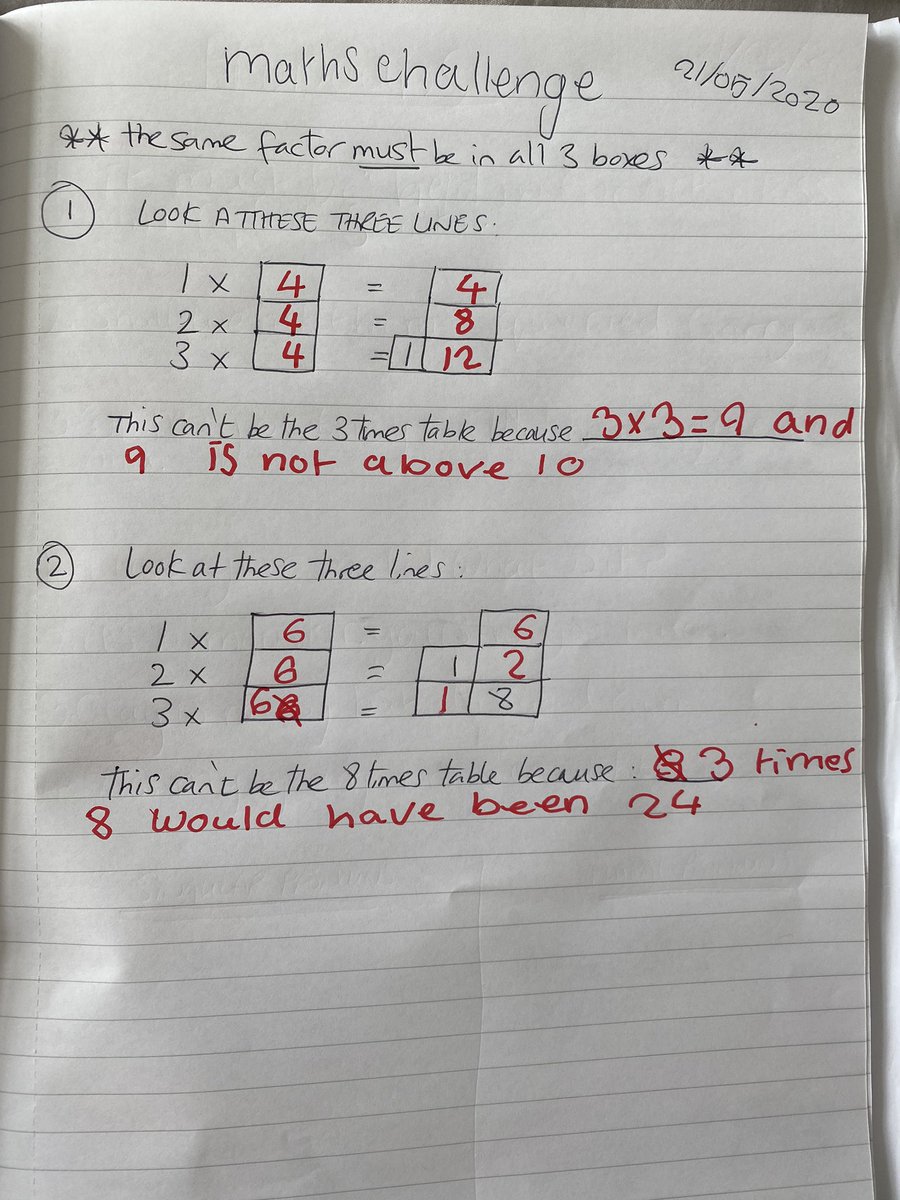 maths challenge 21/05/2020
** the same factor must be in all 3 boxes **
1 LOOK AT THESE THREE LINES:
1 x 4 = 4
2 x 4 = 8
3 x 4 = 1 12
This can't be the 3 times table because 3x3=9 and
9 is not above 10
2 Look at these three lines:
1 x 6 = 6
2 x 6 = 1 2
3 x 6 = 1 8
This can't be the 8 times table because: 3 times
8 would have been 24